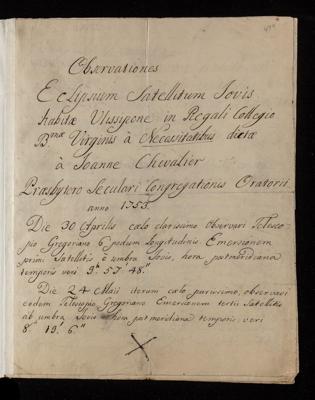 Observationes
Eclipsium Satellitum Jovis
habitæ Ulissipone in Regali Collegio
B.mæ Virginis à Necessitatibus dictæ
à Joanne Chevalier
Presbytero Seculari Congregationis Oratorii
anno 1753.
Die 30 Aprilis cælo clarissimo observavi Telesco-
pio Gregoriano 6 pedum longitudinis Emersionem
primi Satellitis è umbra Jovis, hora pátmeridiana
temporis veri 9h 57' 48"
Die 24 Maii iterum cælo purissimo, observavi
eodem Telescopio Gregoriano Emersionem tertii Satellitis
ab umbra Jovis hora patmeridiana temporis veri
8h 19' 6"